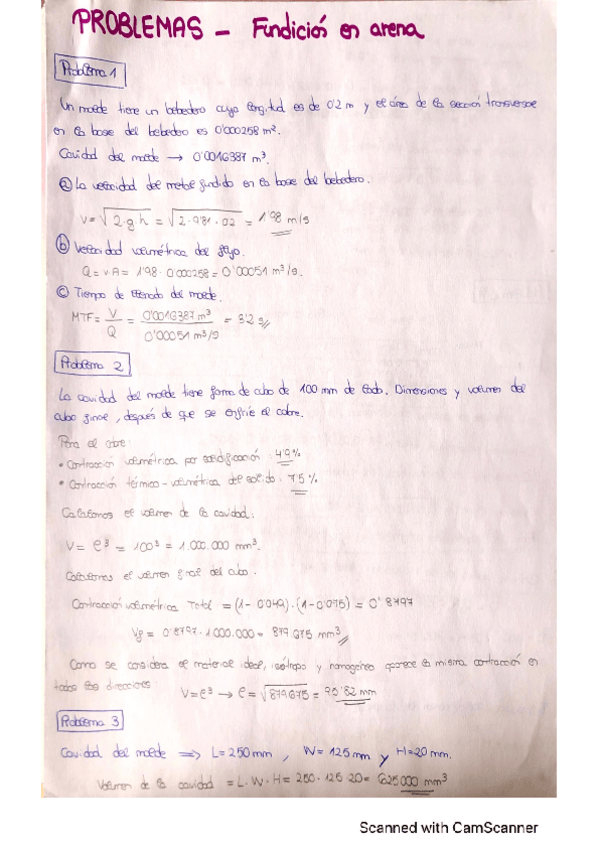 PROBLEMAS - Fundición en arena
Problema 1
Un molde tiene un bebedero cuya longitud es de 0'2 m y el área de la sección transversal
en la base del bebedero es 0'000258 m².
Cavidad del molde → 0'0016387 m³.
ⓐ La velocidad del metal fundido en la base del bebedero.
V = √2·g·h = √2·9'81·0'2 = 1'98 m/s
ⓑ Velocidad volumétrica del flujo.
Q = v·A = 1'98·0'000258 = 0'00051 m³/s.
ⓒ Tiempo de llenado del molde.
MTF = V/Q = 0'0016387 m³ / 0'00051 m³/s = 3'2 s
Problema 2
La cavidad del molde tiene forma de cubo de 100 mm de lado. Dimensiones y volumen del
cubo final, después de que se enfríe el cobre.
Para el cobre:
• Contracción volumétrica por solidificación: 4'9%
• Contracción térmico-volumétrica del sólido: 7'5%
Calculamos el volumen de la cavidad:
V = e³ = 100³ = 1.000.000 mm³.
Calculamos el volumen final del cubo.
Contracción volumétrica Total = (1-0'049)·(1-0'075) = 0'8797
Vf = 0'8797·1.000.000 = 879.675 mm³
Como se considera el material ideal, isótropo y homogéneo aparece la misma contracción en
todas las direcciones: V = e³ → e = √879675 = 95'82 mm
Problema 3
Cavidad del molde ⇒ L = 250 mm, W = 125 mm y H = 20 mm.
Volumen de la cavidad = L·W·H = 250·125·20 = 625000 mm³
Scanned with CamScanner